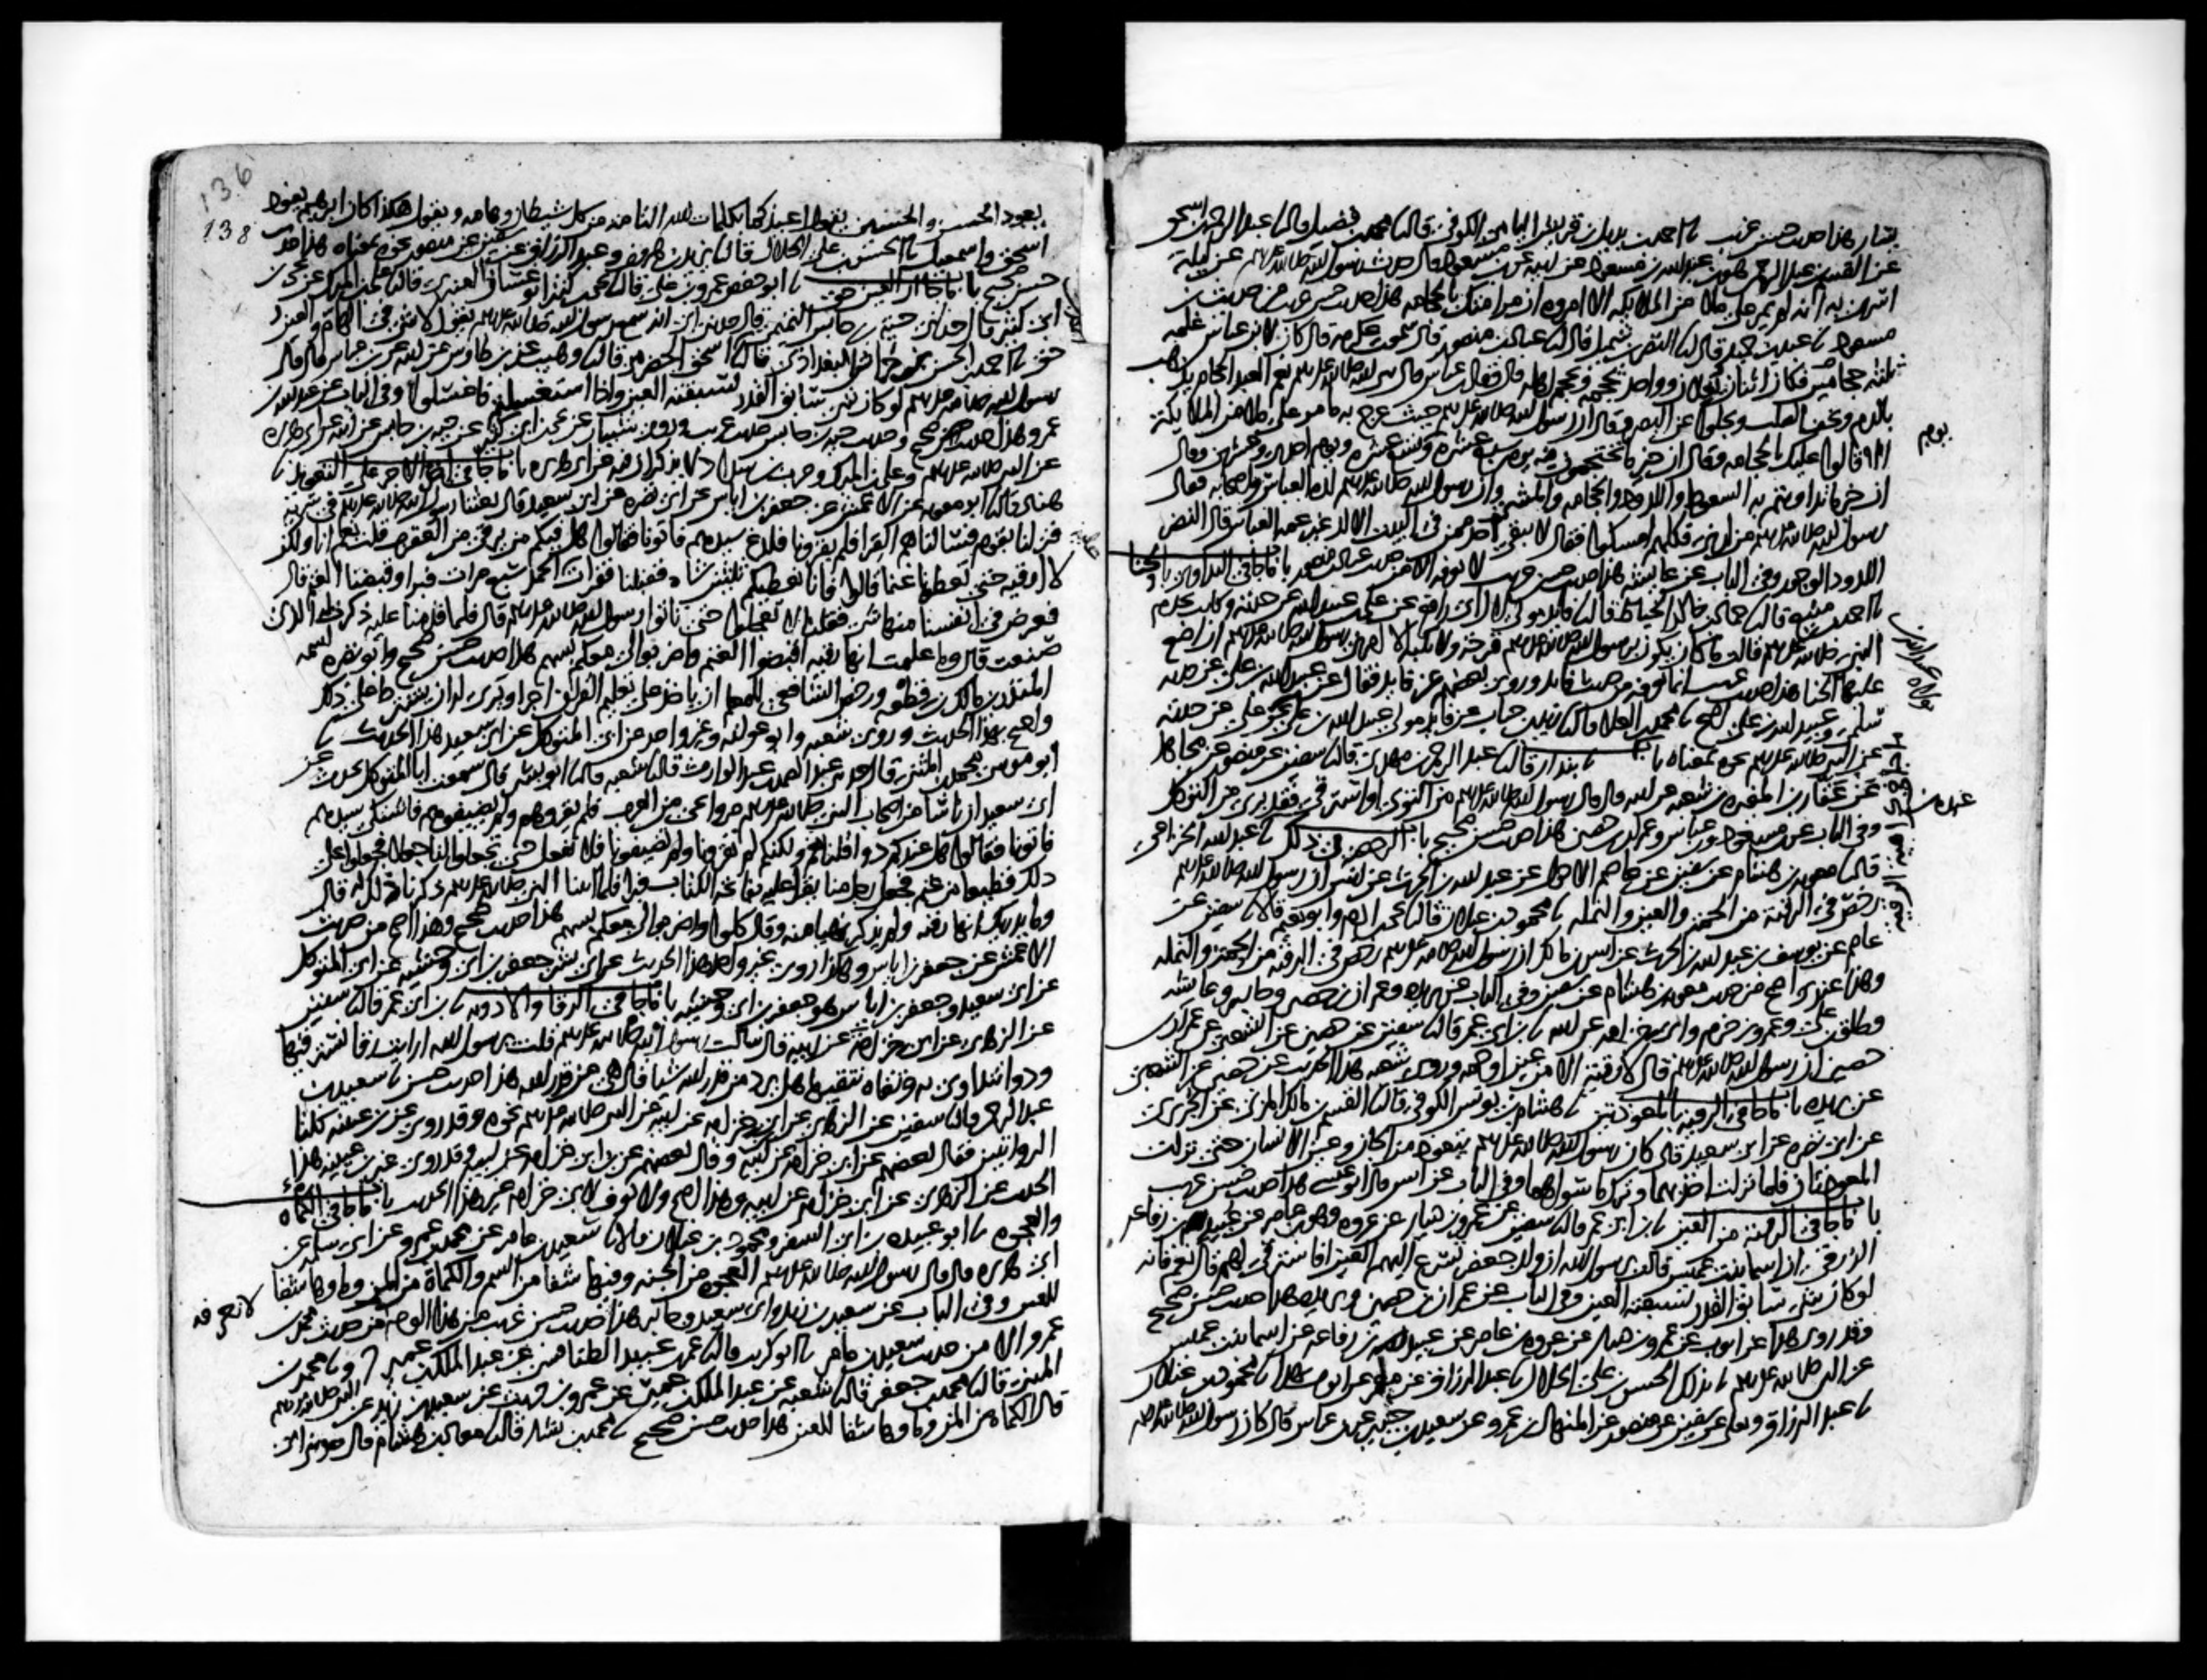 بشار هذا حديث حسن غريب احمد بن بديل بن قريش اليامي الكوفي قال محمد بن فضيل قال عبد الرحمن بن اسحق
عن القسم بن عبد الرحمن هو ابن عبد الله بن مسعود عن ابيه عن ابن مسعود قال حدث رسول الله صلى الله عليه وسلم عن ليلة
اسري به انه لم يمر على ملا من الملايكة الا امروه ان مر امتك بالحجامة هذا حديث حسن غريب من حديث ابن
مسعود عبد بن حميد قال النضر بن شميل قال عباد بن منصور قال سمعت عكرمة قال كان لابن عباس غلمة
ثلثة حجامين فكان اثنان يغلان وواحد يحجمه ويحجم اهله قال وقال ابن عباس قال نبي الله صلى الله عليه وسلم نعم العبد الحجام يذهب
بالدم ويخف الصلب ويجلو عن البصر وقال ان رسول الله صلى الله عليه وسلم حيث عرج به ما مر على ملا من الملايكة
الا قالوا عليك بالحجامة وقال ان خير ما تحتجمون فيه يوم سبع عشرة وتسع عشرة ويوم احدى وعشرين وقال
ان خير ما تداويتم به السعوط واللدود والحجامة والمشي وان رسول الله صلى الله عليه وسلم لده العباس واصحابه فقال
رسول الله صلى الله عليه وسلم من لدني فكلهم امسكوا فقال لا يبقى احد ممن في البيت الا لد غير عمه العباس قال النضر
اللدود الوجور وفي الباب عن عايشة هذا حديث حسن غريب لا نعرفه الا من حديث عباد بن منصور باب ما جا في التداوي بالحنا
احمد بن منيع قال حماد بن خالد الخياط قال فايد مولى لال ابي رافع عن علي بن عبيد الله عن جدته وكانت تخدم
النبي صلى الله عليه وسلم قالت ما كان يكون برسول الله صلى الله عليه وسلم قرحة ولا نكبة الا امرني رسول الله صلى الله عليه وسلم ان اضع
عليها الحنا هذا حديث غريب انما نعرفه من حديث فايد وروى بعضهم عن فايد فقال عن عبيد الله بن علي عن جدته
سلمى وعبيد الله بن علي اصح محمد بن العلا قال زيد بن حباب عن فايد مولى عبيد الله بن علي عن علي عن جدته
عن النبي صلى الله عليه وسلم نحوه بمعناه باب بندار قال عبد الرحمن بن مهدي قال سفين عن منصور عن مجاهد
عن عقار بن المغيرة بن شعبة عن ابيه قال قال رسول الله صلى الله عليه وسلم من اكتوى او استرقى فقد بري من التوكل
وفي الباب عن ابن مسعود وابن عباس وعمران بن حصين هذا حديث حسن صحيح باب الرخصة في ذلك عبدة بن عبد الله الخزاعي
قال معوية بن هشام عن سفين عن عاصم الاحول عن عبد الله بن الحرث عن انس ان رسول الله صلى الله عليه وسلم
رخص في الرقية من الحمة والعين والنملة محمود بن غيلان قال يحيى بن ادم وابو نعيم قالا سفين عن
عاصم عن يوسف بن عبد الله بن الحرث عن انس بن مالك ان رسول الله صلى الله عليه وسلم رخص في الرقية من الحمة والنملة
وهذا عندي اصح من حديث معوية بن هشام عن سفين وفي الباب عن بريدة وعمران بن حصين وجابر وعايشة
وطلق بن علي وعمرو بن حزم وابي خزامة عن ابيه ابن ابي عمر قال سفين عن حصين عن الشعبي عن عمران بن
حصين ان رسول الله صلى الله عليه وسلم قال لا رقية الا من عين او حمة وروى شعبة هذا الحديث عن حصين عن الشعبي
عن بريدة باب ما جا في الرقية بالمعوذتين هشام بن يونس الكوفي قال القسم بن مالك المزني عن الجريري
عن ابي نضرة عن ابي سعيد قال كان رسول الله صلى الله عليه وسلم يتعوذ من الجان وعين الانسان حتى نزلت
المعوذتان فلما نزلت اخذ بهما وترك ما سواهما وفي الباب عن انس قال ابو عيسى هذا حديث حسن غريب
باب ما جا في الرقية من العين ابن ابي عمر قال سفين عن عمرو بن دينار عن عروة وهو بن عامر عن عبيد بن رفاعة
الزرقي ان اسما بنت عميس قالت يرسول الله ان ولد جعفر تسرع اليهم العين افاسترقي لهم قال نعم فانه
لو كان شي سابق القدر لسبقته العين وفي الباب عن عمران بن حصين وبريدة هذا حديث حسن صحيح
وقد روي هذا عن ايوب عن عمرو بن دينار عن عروة بن عامر عن عبيد بن رفاعة عن اسما بنت عميس
عن النبي صلى الله عليه وسلم بذلك الحسن بن علي الخلال عبد الرزاق عن معمر عن ايوب بهذا محمود بن غيلان
عبد الرزاق ويعلى عن سفين عن منصور عن المنهال بن عمرو عن سعيد بن جبير عن ابن عباس قال كان رسول الله صلى الله عليه وسلم
136
138
يعوذ الحسن والحسين يقول اعيذكما بكلمات الله التامة من كل شيطان وهامة ويقول هكذا كان ابرهيم يعوذ
اسحق واسمعيل الحسن بن علي الخلال قال يزيد بن هرون وعبد الرزاق عن سفين عن منصور نحوه بمعناه هذا حديث
حسن صحيح باب ما جا ان العين حق ابو حفص عمرو بن علي قال يحيى بن كثير ابو غسان العنبري قال علي بن المبرك عن يحيى بن
ابي كثير قال حدثني حية بن حابس التميمي قال حدثني ابي انه سمع رسول الله صلى الله عليه وسلم يقول لا شي في الهام والعين
حق احمد بن الحسن بن خراش البغدادي قال احمد بن اسحق الحضرمي قال وهيب عن ابن طاوس عن ابيه عن ابن عباس قال قال
رسول الله صلى الله عليه وسلم لو كان شي سابق القدر لسبقته العين واذا استغسلتم فاغسلوا وفي الباب عن عبد الله بن
عمرو وهذا حديث حسن صحيح وحديث حية بن حابس حديث غريب وروى شيبان عن يحيى بن ابي كثير عن حية بن حابس عن ابيه عن ابي هريرة
عن النبي صلى الله عليه وسلم وعلي بن المبرك وحرب بن شداد لا يذكران فيه عن ابي هريرة باب ما جا في اخذ الاجر على التعويذ
هناد قال ابو معوية عن الاعمش عن جعفر بن اياس عن ابي نضرة عن ابي سعيد قال بعثنا رسول الله صلى الله عليه وسلم في سرية
فنزلنا بقوم فسالناهم القرا فلم يقرونا فلدغ سيدهم فاتونا فقالوا هل فيكم من يرقي من العقرب قلت نعم انا ولكن
لا ارقيه حتى تعطونا غنما قالوا فانا نعطيكم ثلثين شاة فقبلنا فقرات الحمد سبع مرات فبرا وقبضنا الغنم قال
فعرض في انفسنا منها شي فقلنا لا تعجلوا حتى تاتوا رسول الله صلى الله عليه وسلم قال فلما قدمنا عليه ذكرت له الذي
صنعت قال وما علمت انها رقية اقبضوا الغنم واضربوا لي معكم بسهم هذا حديث حسن صحيح وابو نضرة اسمه
المنذر بن مالك بن قطعة ورخص الشافعي للمعلم ان ياخذ على تعليم القران اجرا ويرى له ان يشترط على ذلك
واحتج بهذا الحديث وروى شعبة وابو عوانة وغير واحد عن ابي المتوكل عن ابي سعيد هذا الحديث
ابو موسى محمد بن المثنى قال حدثني عبد الصمد بن عبد الوارث قال شعبة قال ابو بشر قال سمعت ابا المتوكل يحدث عن
ابي سعيد ان ناسا من اصحاب النبي صلى الله عليه وسلم مروا بحي من العرب فلم يقروهم ولم يضيفوهم فاشتكى سيدهم
فاتونا فقالوا هل عندكم دوا قلنا نعم ولكنكم لم تقرونا ولم تضيفونا فلا نفعل حتى تجعلوا لنا جعلا فجعلوا على
ذلك قطيعا من غنم فجعل رجل منا يقرا عليه بفاتحة الكتاب فبرا فلما اتينا النبي صلى الله عليه وسلم ذكرنا ذلك له قال
وما يدريك انها رقية ولم يذكر نهيا منه وقال كلوا واضربوا لي معكم بسهم هذا حديث صحيح وهذا اصح من حديث
الاعمش عن جعفر بن اياس وهكذا روى غير واحد هذا الحديث عن ابي بشر جعفر بن ابي وحشية عن ابي المتوكل
عن ابي سعيد وجعفر بن اياس هو جعفر بن ابي وحشية باب ما جا في الرقا والادوية ابن ابي عمر قال سفين
عن الزهري عن ابي خزامة عن ابيه قال سالت رسول الله صلى الله عليه وسلم قلت يرسول الله ارايت رقا نسترقيها
ودوا نتداوى به وتقاة نتقيها هل يرد من قدر الله شيا قال هي من قدر الله هذا حديث حسن سعيد بن
عبد الرحمن قال سفين عن الزهري عن ابن ابي خزامة عن ابيه عن النبي صلى الله عليه وسلم نحوه وقد روي عن ابن عيينة كلتا
الروايتين فقال بعضهم عن ابي خزامة عن ابيه وقال بعضهم عن ابن ابي خزامة عن ابيه وقد روى غير ابن عيينة هذا
الحديث عن الزهري عن ابي خزامة عن ابيه وهذا اصح ولا نعرف لابي خزامة غير هذا الحديث باب ما جا في الكماة
والعجوة ابو عبيدة بن ابي السفر ومحمود بن غيلان قالا سعيد بن عامر عن محمد بن عمرو عن ابي سلمة عن
ابي هريرة قال قال رسول الله صلى الله عليه وسلم العجوة من الجنة وفيها شفا من السم والكماة من المن وماوها شفا
للعين وفي الباب عن سعيد بن زيد وابي سعيد وجابر هذا حديث حسن غريب من هذا الوجه من حديث محمد بن لا نعرفه
عمرو الا من حديث سعيد بن عامر ابو كريب قال عمر بن عبيد الطنافسي عن عبد الملك بن عمير ح و محمد بن
المثنى قال محمد بن جعفر قال شعبة عن عبد الملك بن عمير عن عمرو بن حريث عن سعيد بن زيد عن النبي صلى الله عليه وسلم
قال الكماة من المن وماوها شفا للعين هذا حديث حسن صحيح محمد بن بشار قال معاذ بن هشام قال حدثني ابي